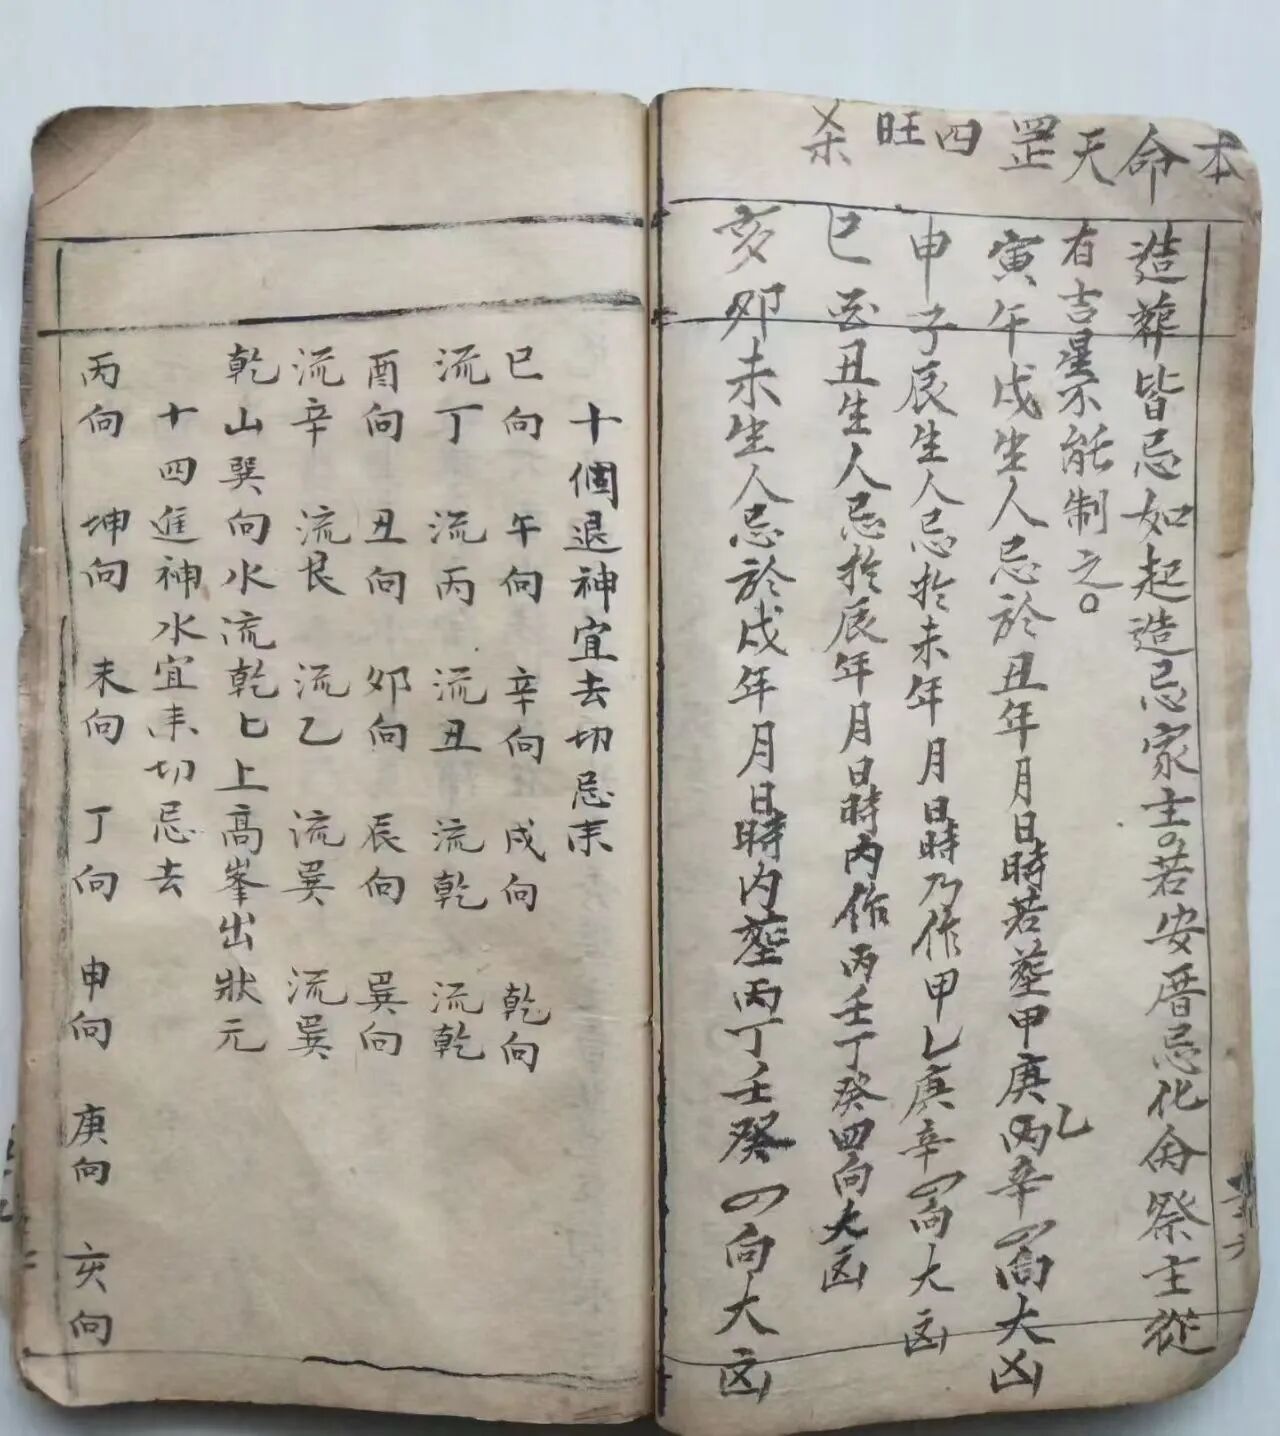 本命天罡四旺杀
造葬皆忌如起造忌家主。若安厝忌化命祭主從
有吉星不能制之。
寅午戌生人忌於丑年月日時若葬甲庚丙乙辛四向大凶
申子辰生人忌於未年月日時乃作甲乙庚辛四向大凶
巳酉丑生人忌於辰年月日時内作丙壬丁癸四向大凶
亥卯未生人忌於戌年月日時内葬丙丁壬癸四向大凶
十個退神宜去切忌来
巳向 午向 辛向 戌向 乾向
流丁 流丙 流丑 流乾 流乾
酉向 丑向 卯向 辰向 巽向
流辛 流艮 流乙 流巽 流巽
乾山巽向水流乾 上高峯出狀元
十四進神水宜来切忌去
丙向 坤向 未向 丁向 申向 庚向 亥向